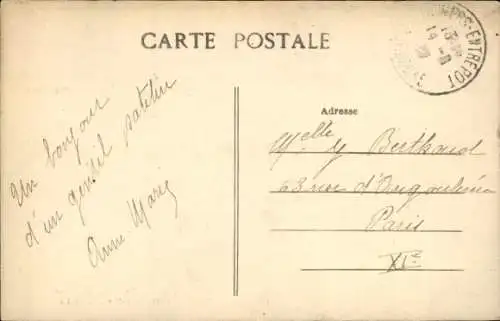 CARTE POSTALE
ENTREPOT
Un bonjour
d'un gentil patelin
Anne Marie
Adresse
Melle Y Berthaud
63 rue d'Angoulême
Paris
XIe